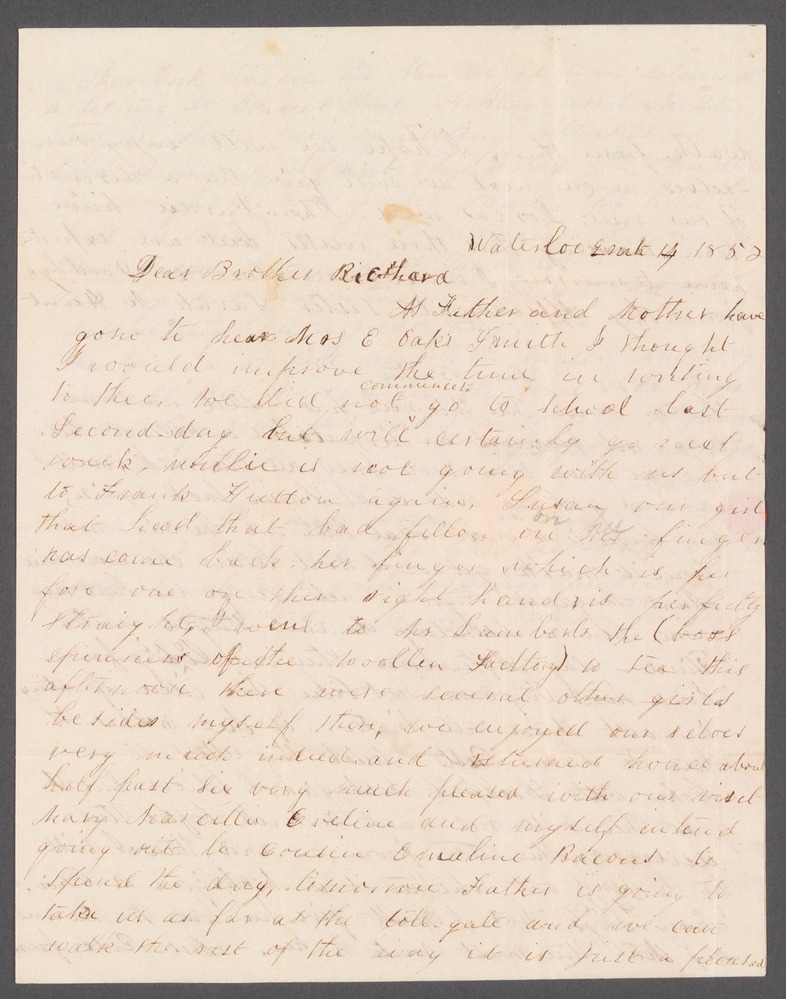 Waterloo 2 mt 14 1852
Dear Brother Richard
As Father and Mother have
gone to hear Mrs E Oaks Smith I thought
I would improve the time in writing
to thee, we did not commence go to school last
Second-day but will certainly go next
week, Willie is not going with us but
to Frank Hutton again, Susan our girl
that had that bad fellon on her finger
has come back her finger which is her
fore one on ther right hand is perfectly
straight, I went to Mr Lamberts the (boss
spinners of the Woollen Factory) to tea this
afternoon there were several other girls
besides myself there, we enjoyed our selves
very much indeed and returned home about
half past six very much pleased with our visit
Mary Marcella Eveline and myself intend
going out to Cousin Emaline Bacons to
spend the day, tomorrow Father is going to
take us as far as the toll-gate and we can
walk the rest of the way it is just a pleasant